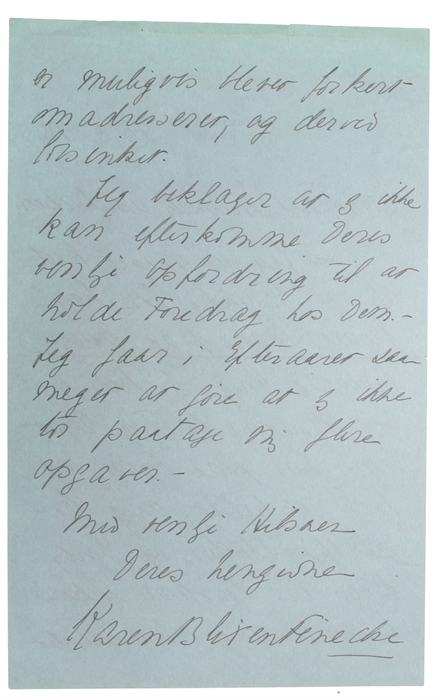 er muligvis blevet forkert
omadresseret, og derved
forsinket.
Jeg beklager at jeg ikke
kan efterkomme Deres
venlige Opfordring til at
holde Foredrag hos Dem. -
Jeg faar i Efteraaret saa
meget at gøre at jeg ikke
tør paatage mig flere
opgaver. -
Med venlig Hilsen
Deres hengivne
Karen Blixen Finecke